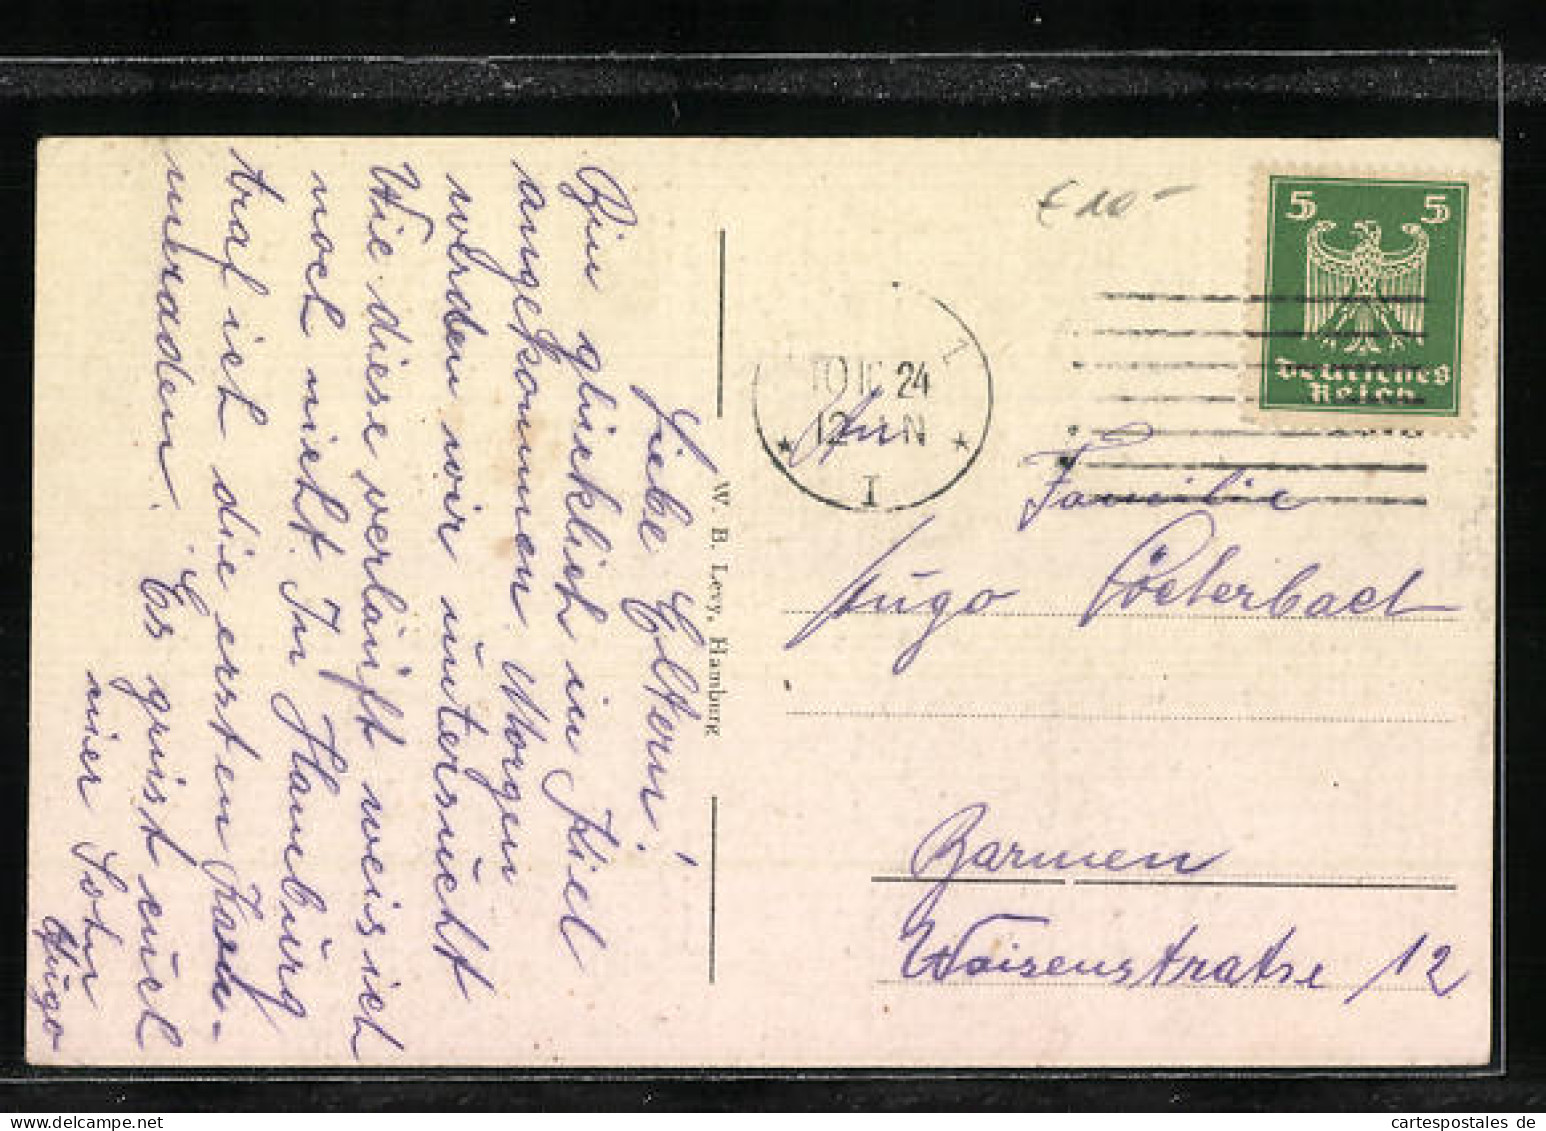 Liebe Eltern!
Bin glücklich in Kiel
angekommen. Morgen
werden wir untersücht
Wie diese verläuft weis ich
noch nicht. In Hamburg
traf ich die ersten Kam-
meraden. Es grüst euch
euer Sohn
Hugo
W. B. Levy, Hamburg
€ 10-
5 5
Deutsches
Reich
1
24
12-1 N
* *
I
An
Familie
Hugo Osterbach
Barmen
Waisenstratse 12
cartespostales de